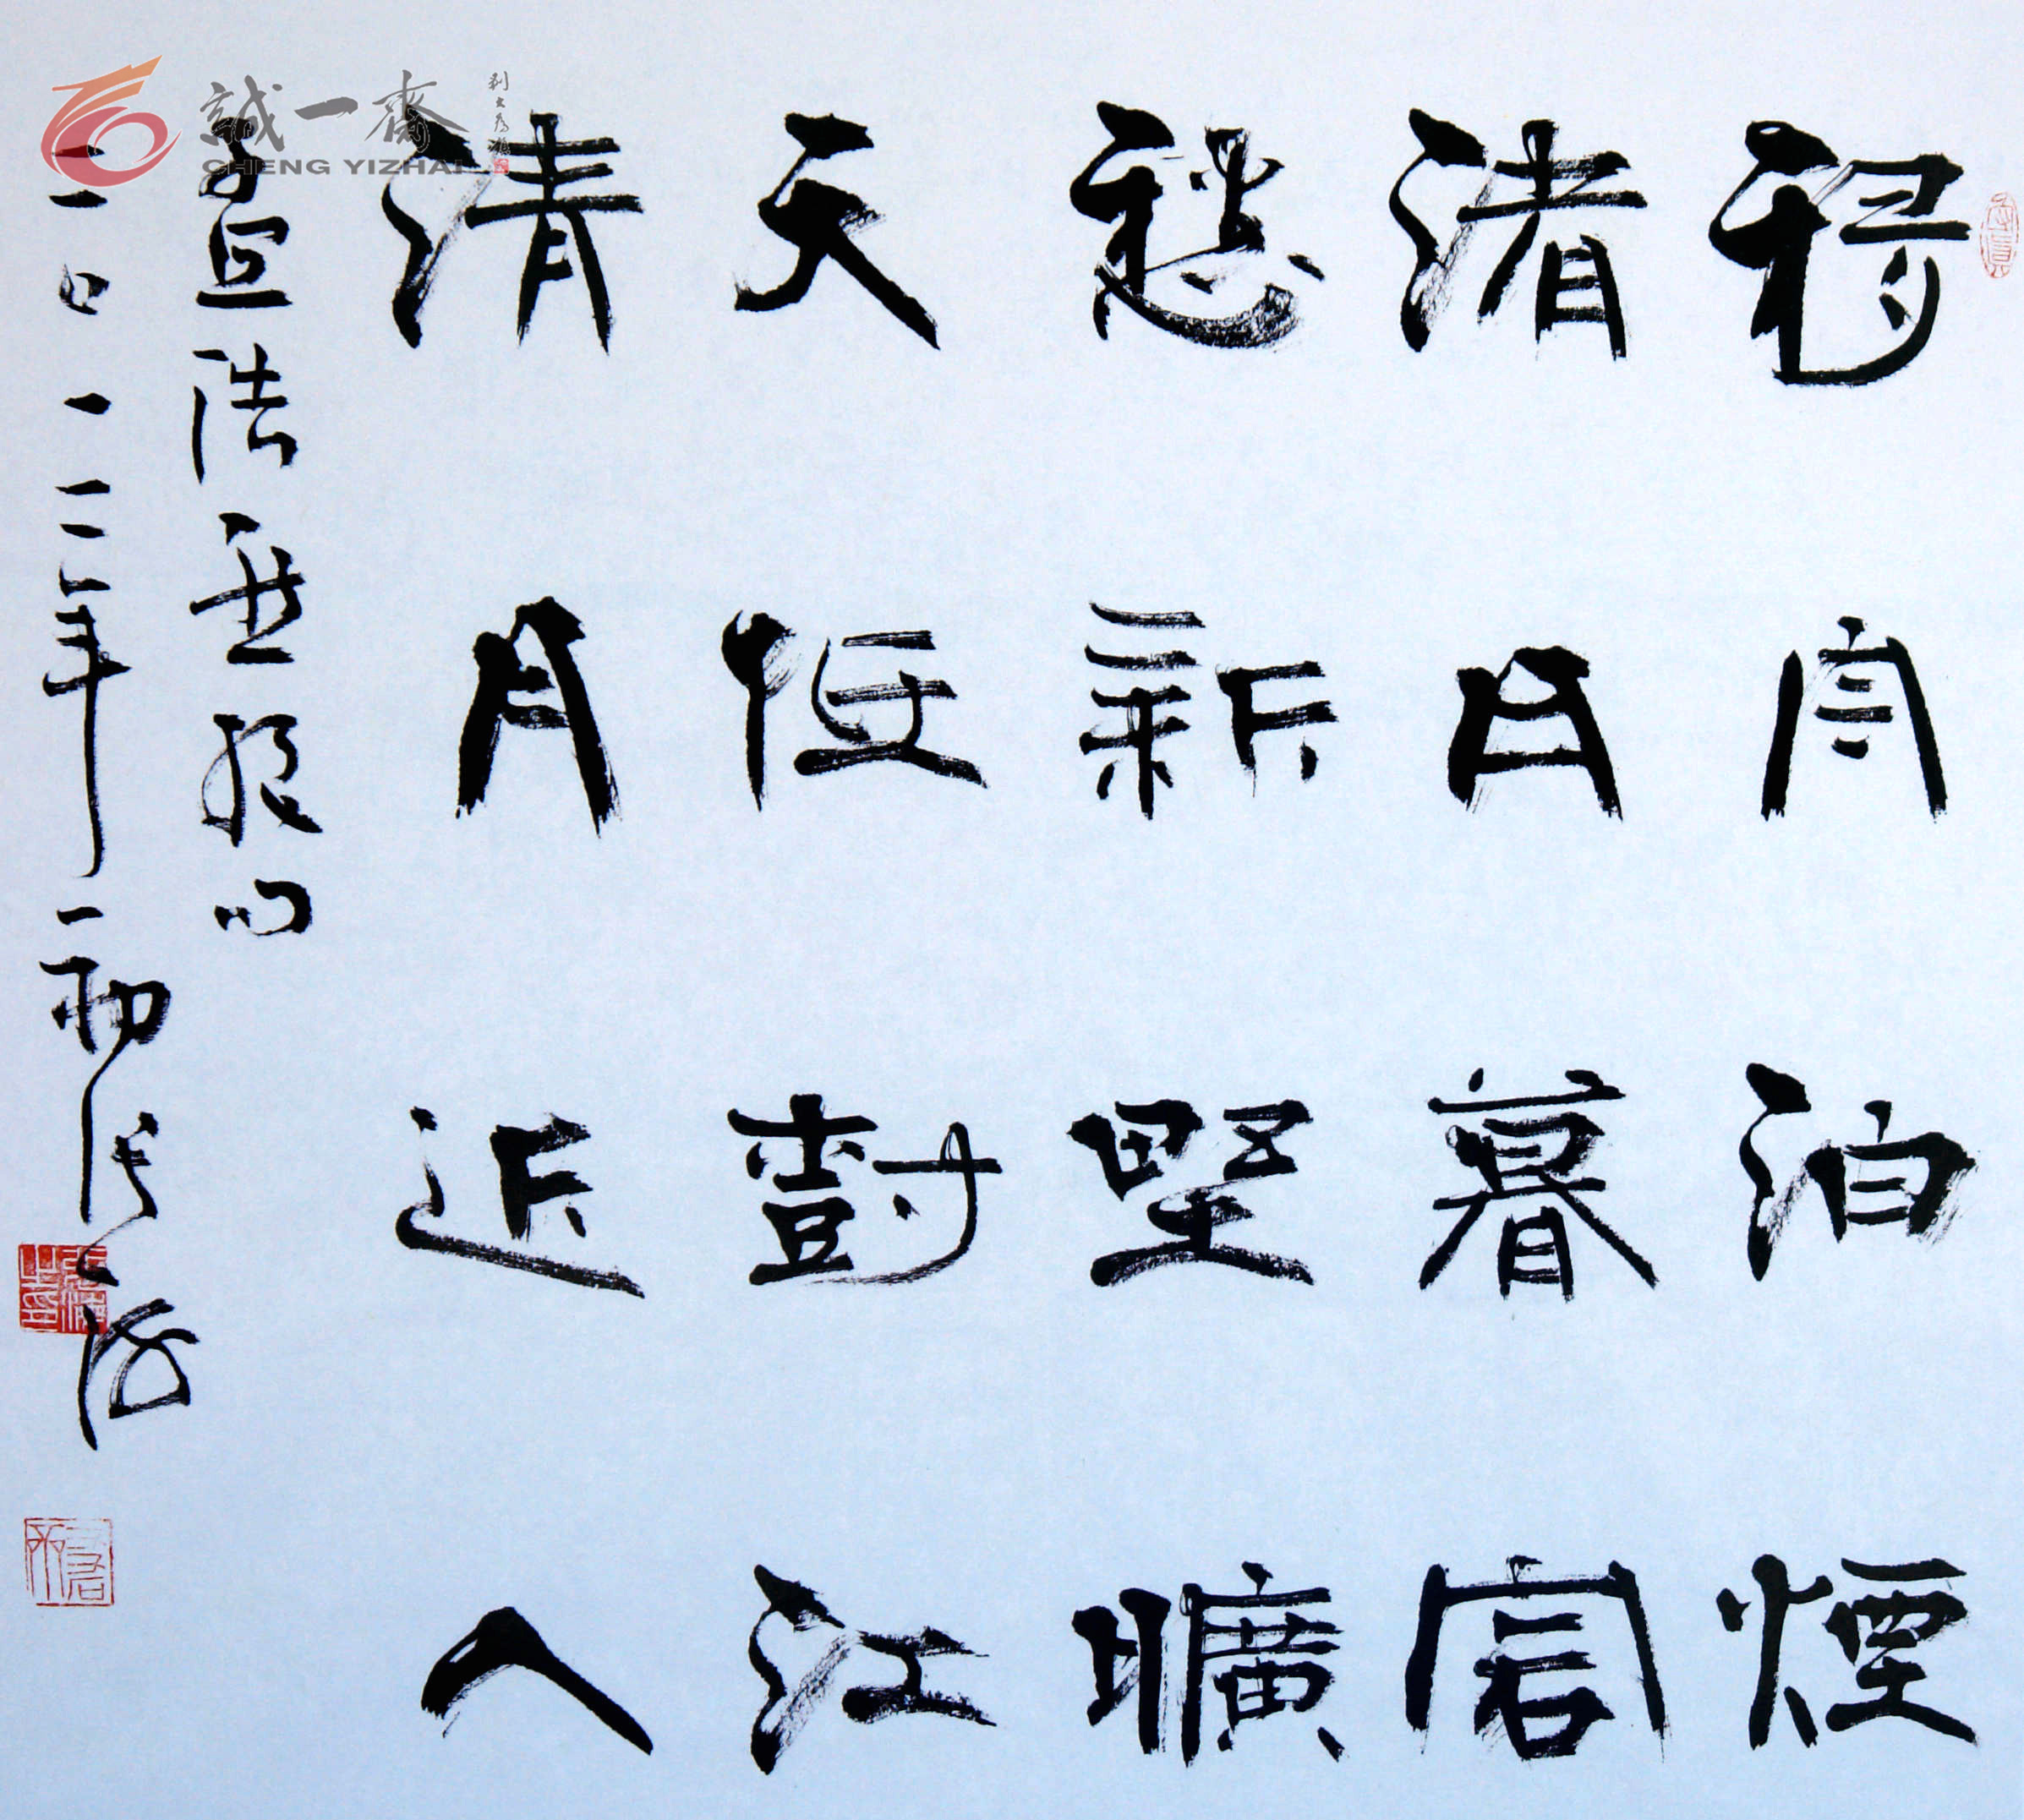 移舟泊煙
渚日暮客
愁新野曠
天低樹江
清月近人
孟浩然
二〇一二年初張海
誠一齋
CHENG YIZHAI